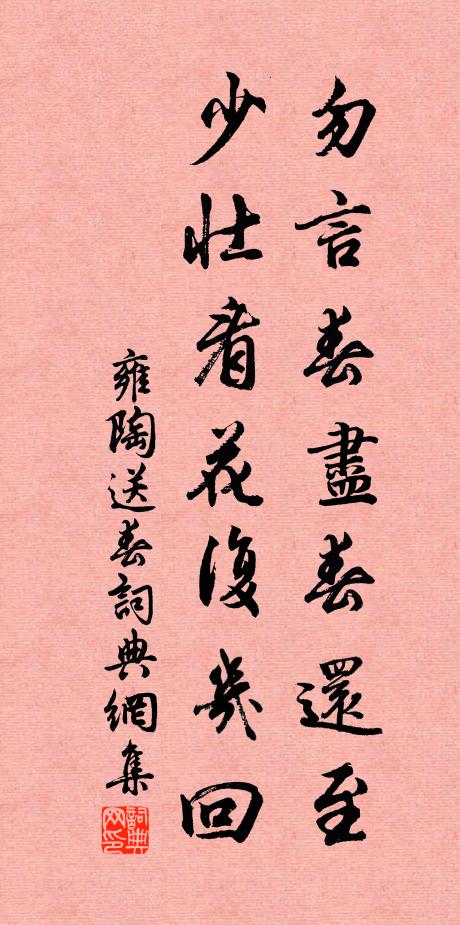 勿言春盡春還至
少壯看花復幾回
雍陶送春詞典網集
詞典网印